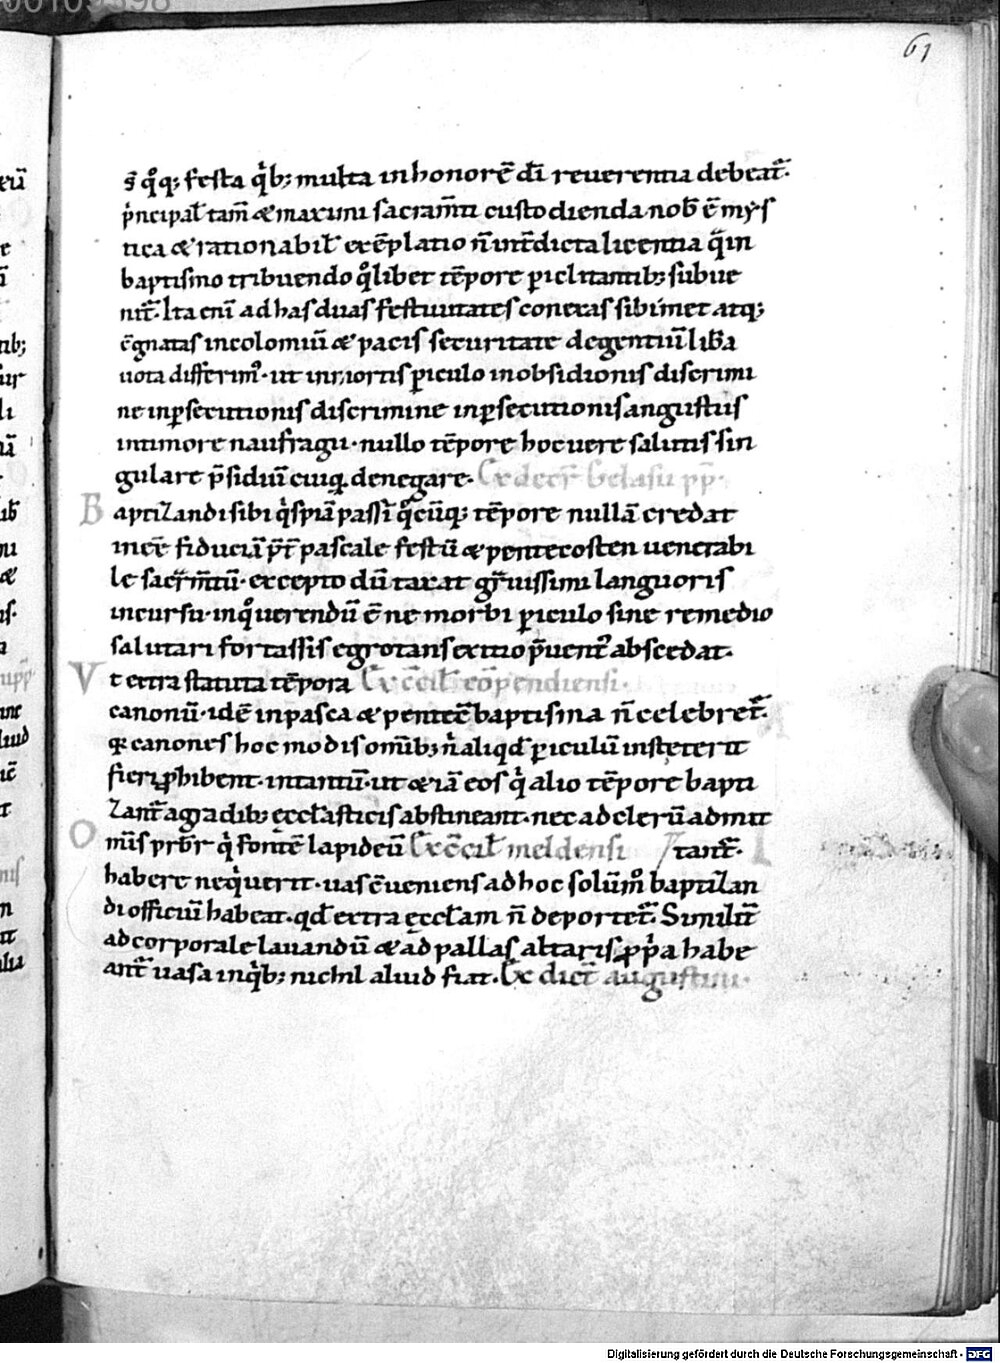 61
s̄ qͦq; festa qͥb; multa in honorē dī reuerentia debeat᷒·
pͥncipal̄ tam̄ & maximi sacram̄ti custodienda nob̄ ē mys
tica & rationabil̄ exēplatio n̄ int̄dicta licentia qͣ in
baptismo tribuendo qͦlibet tēpore ꝑiclitantib; subue
nit᷒· Ita enī ad has duas festiuitates conexas sibimet atq;
c̄gnatas incolomiū & pacis securitate degentiū lib̄a
uota differimꝰ· ut in mortis ꝑiculo in obsidionis discrimi
ne in ꝑsecutionis discrimine in ꝑsecutionis angustiis
in timore naufragii· nullo tēpore hoc uere salutis sin
gulare p̄sidiū cuiq̨ denegare· Ex decr̄ Gelasii pp̄·
Baptizandi sibi qͥspiā passī qͦcūq; tēpore nullā credat
inee fiduciā p̄t̄ pascale festū & pentecosten uenerabi
le sacr̄m̄tū· excepto dū taxat gͣuissimi languoris
incursu· in qͦ uerendū ē ne morbi ꝑiculo sine remedio
salutari fortassis egrotans exitio p̄uentꝰ abscedat·
Vt extra statuta tēpora Ex c̄cil̄ cōpendiensi·
canonū· idē in pasca & pentec̄ baptisma n̄ celebret᷒·
qꝛ canones hoc modis om̄ib; n̄ aliqd̄ ꝑiculū institerit
fieri ꝓhibent· in tantū· ut & iā eos qͥ alio tēpore bapti
zant᷒ a gͣdib; eccl̄asticis abstineant· nec ad clerū admit
Om̄is prb̄r qͥ fontē lapideū Ex c̄cil̄ meldensi / tant᷒·
habere neqͥuerit· uas c̄ueniens ad hoc solūmͦ baptizan
di officiū habeat· qd̄ extra eccl̄am n̄ deportet᷒· Similit̄
ad corporale lauandū & ad pallas altaris ꝓpͥa habe
ant᷒ uasa in qͥb; nichil aliud fiat· Ex dict̄ augustini·
Digitalisierung gefördert durch die Deutsche Forschungsgemeinschaft - DFG